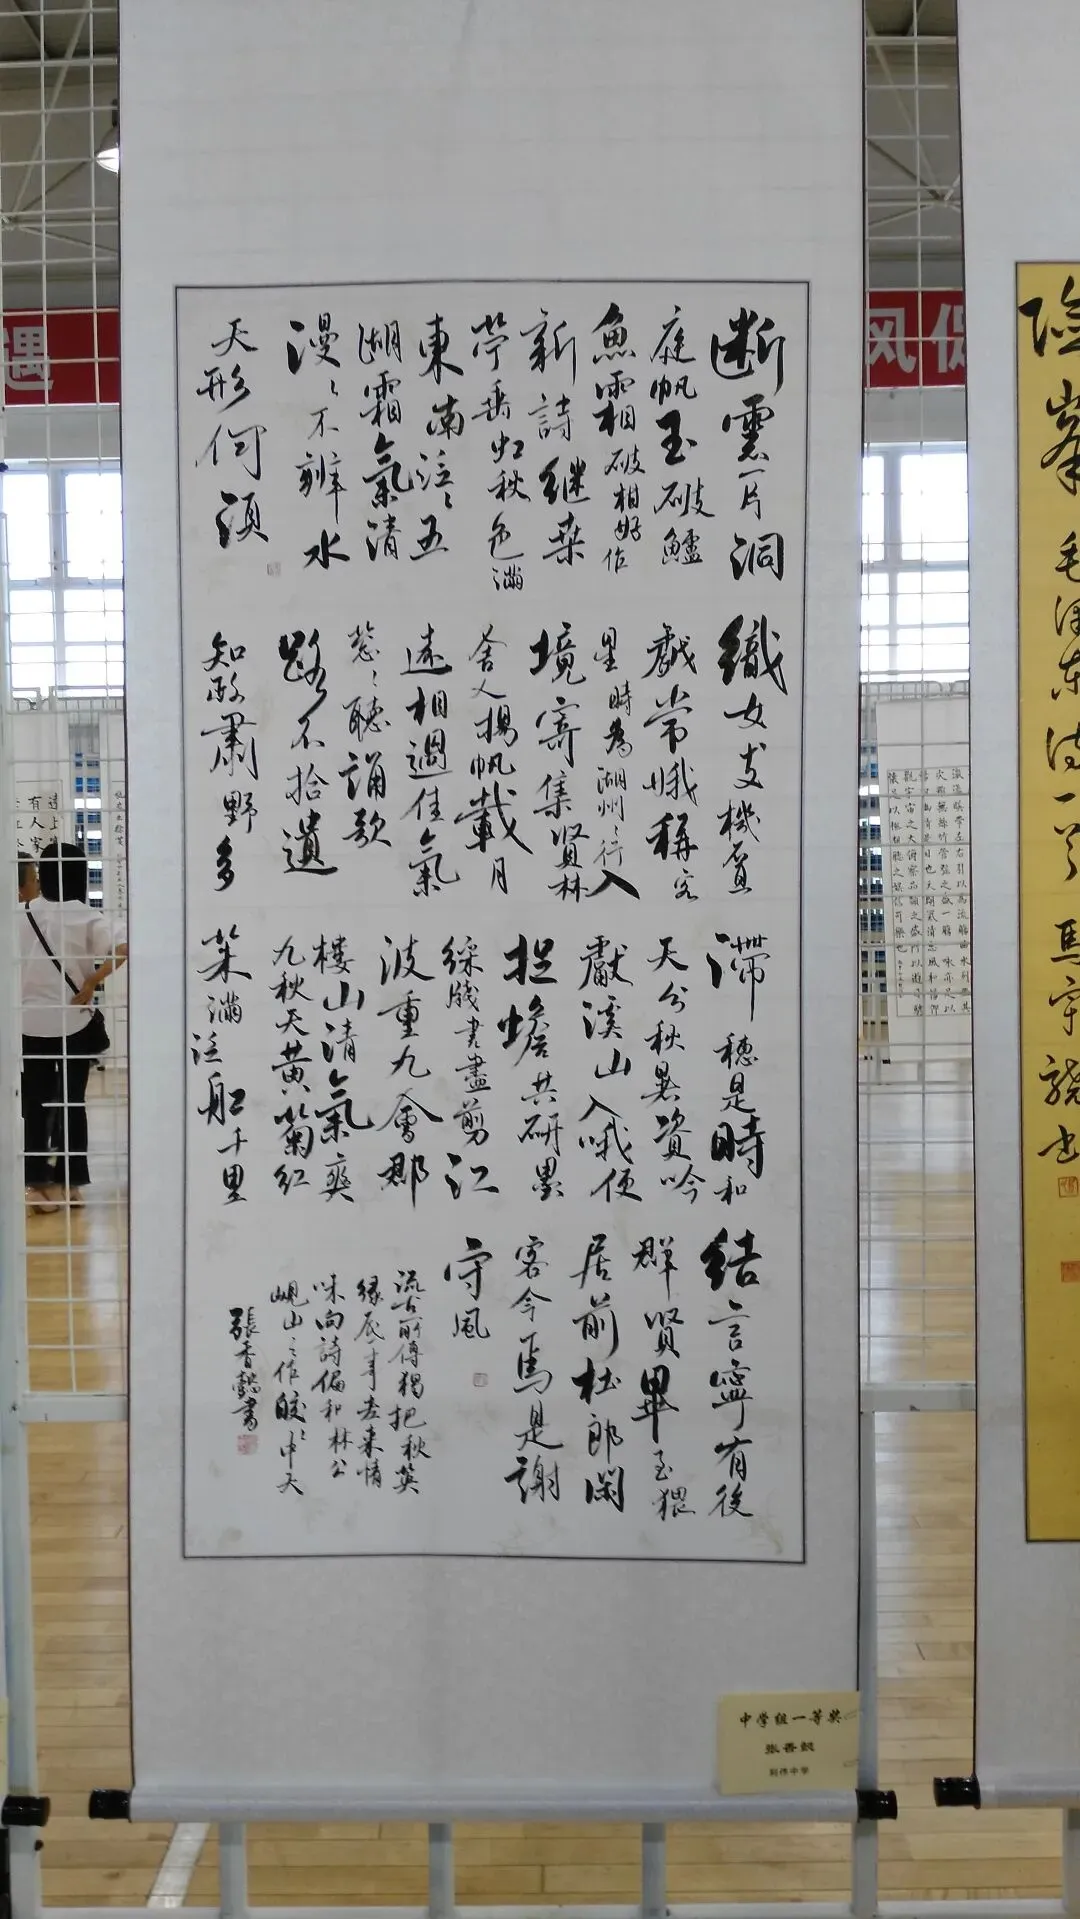 断雲一片洞
庭帆玉破鱸
魚霜相破相好作
新詩継桒
苧垂虹秋色滿
東南泛〻五
湖霜氣清
漫〻不辨水
天形何須
織女支機
戱常娥稱客
星時為湖州之行入
境寄集賢林
舍人揚帆載月
遠相過佳氣
葱〻聽誦歌
路不拾遺
知政肅野多
滯穗是時和
天分秋暑資吟
獻溪山入哦便
捉蟾共研墨
綵牋書盡剪江
波重九會郡
樓山清氣爽
九秋天黄菊紅
茱滿泛船千里
結言寧有後
群賢畢至猥
居前杜郎閑
客今焉是謝
守風
流古所傳獨把秋英
緣底事老來情
味向詩偏和林公
峴山之作皎〻中天
張香懿書
中学组一等奖
张香懿
险峰 毛泽东诗一首 马宇骁书
遇
风促